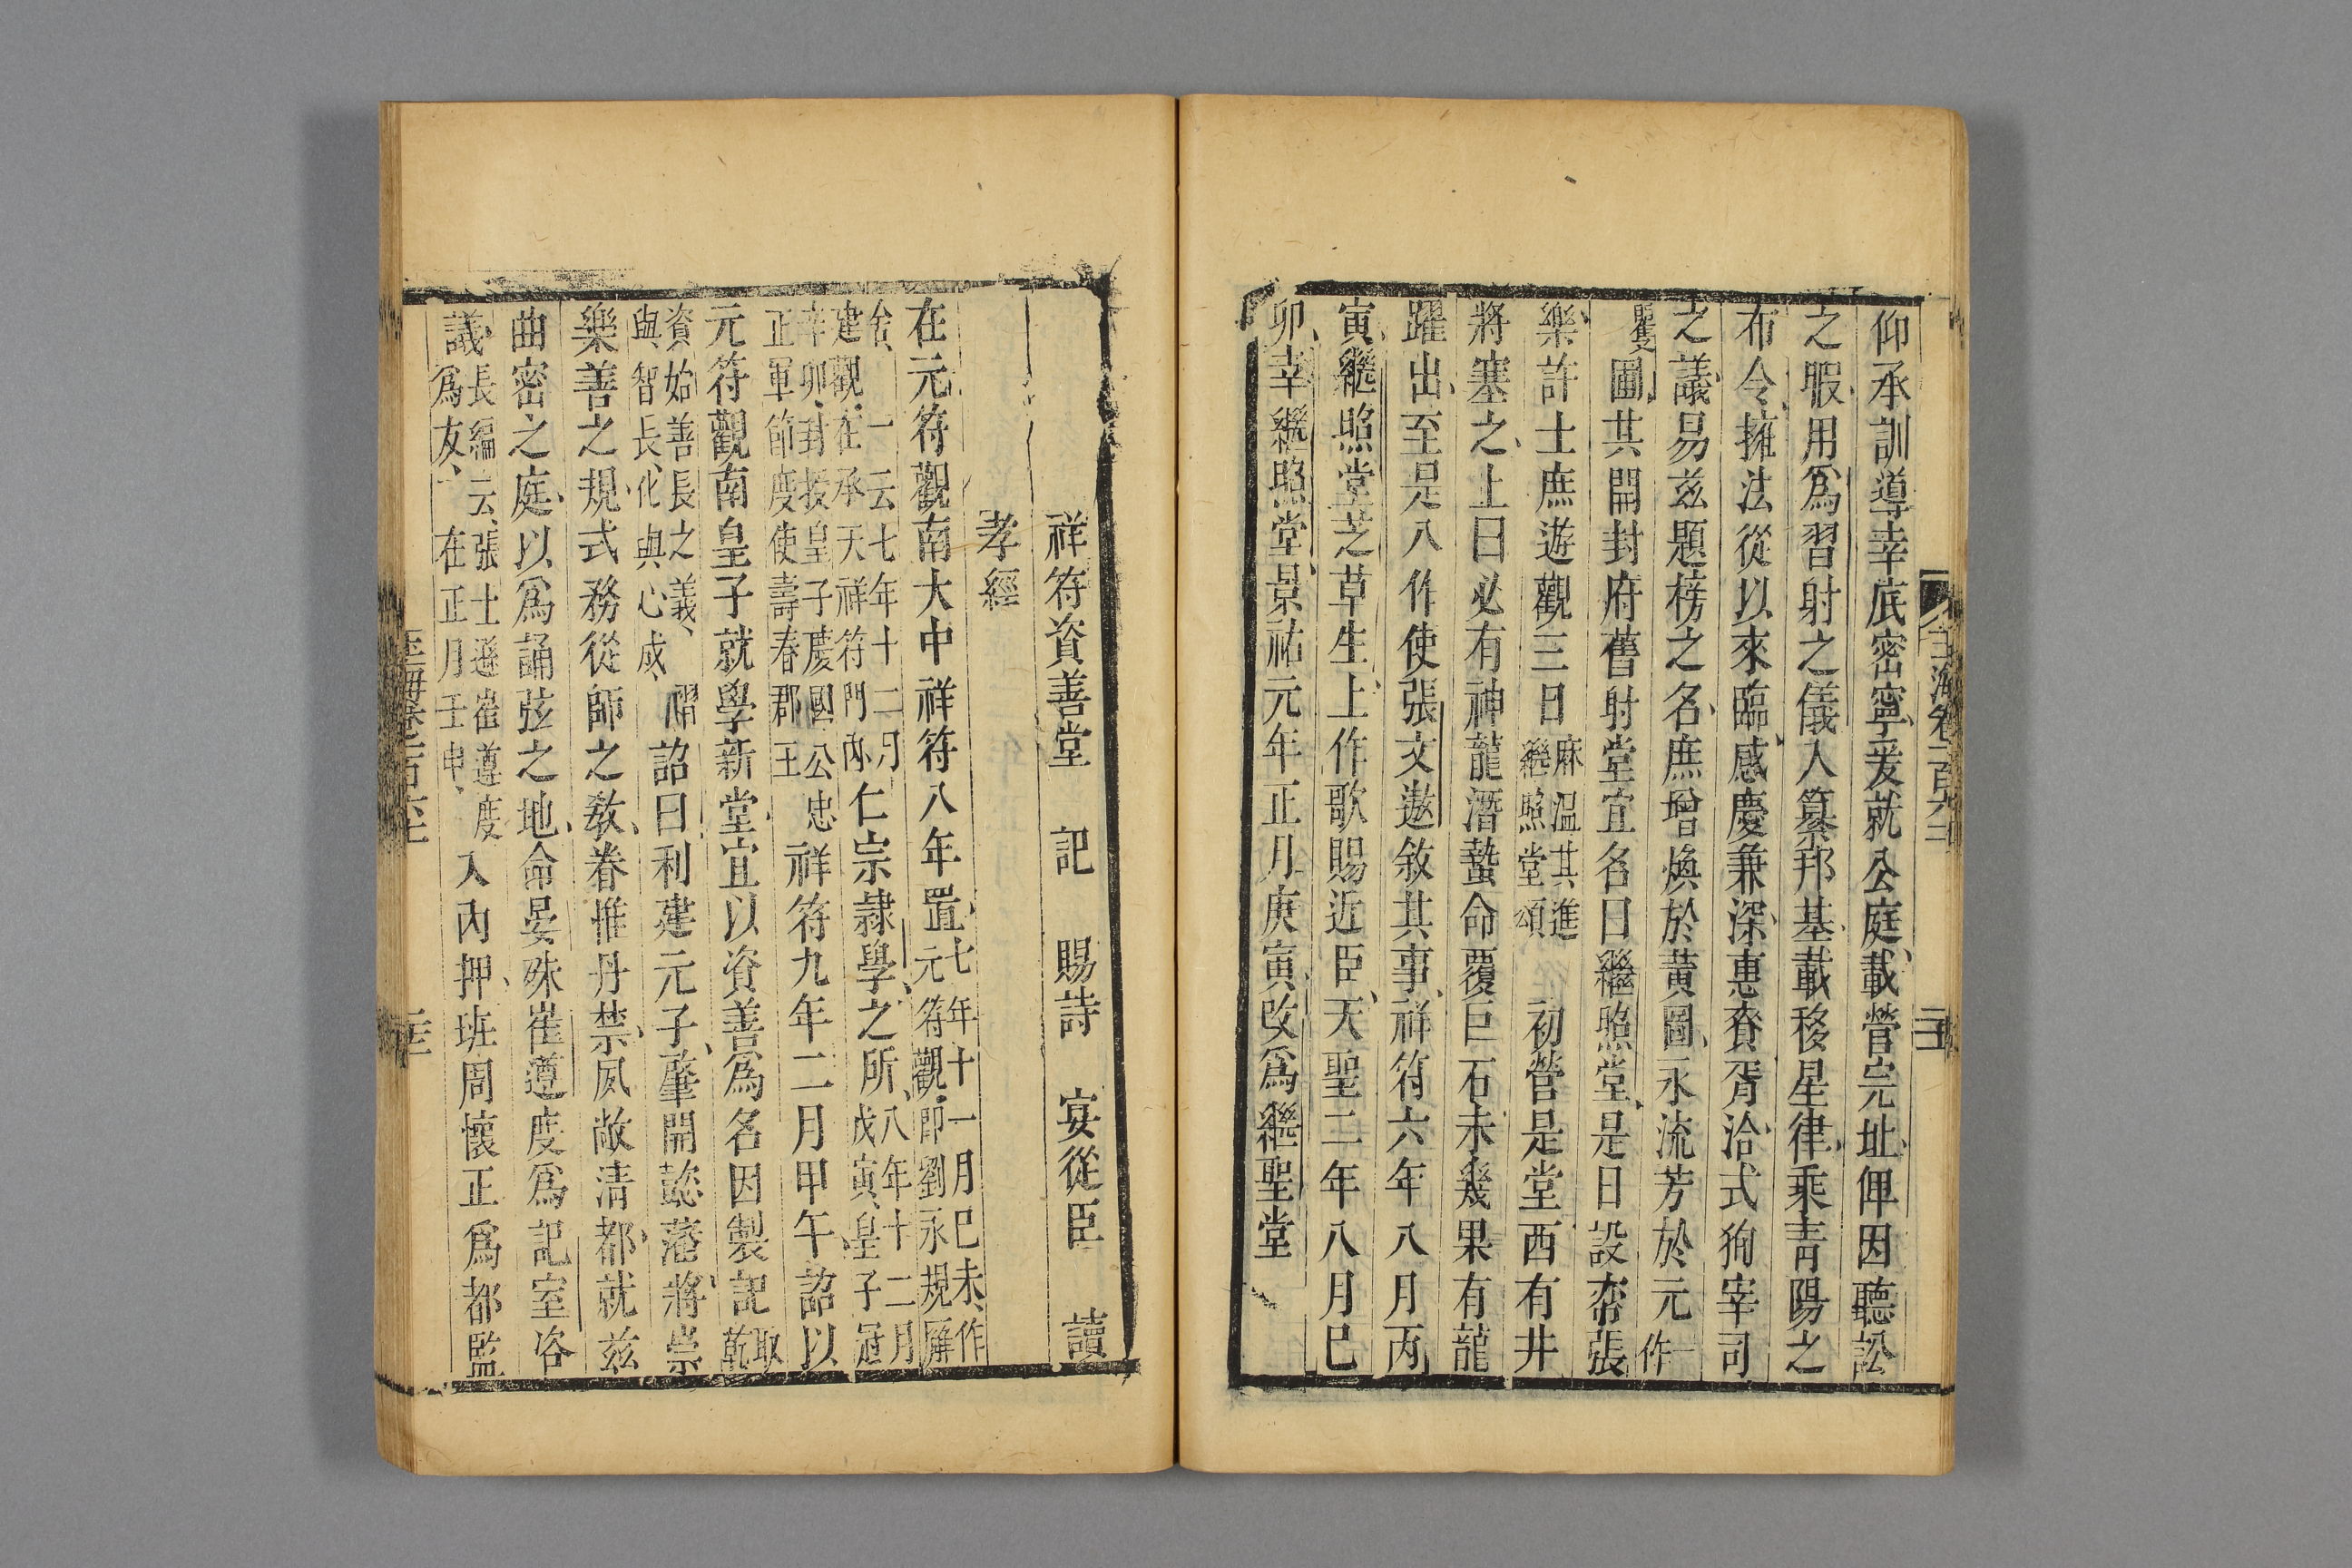 仰承訓導幸底密寧爰就公庭載營完址俾因聽訟
之暇用爲習射之儀入纂邦基載移星律乘青陽之
布令擁法從以來臨感慶兼深惠賚胥洽式徇宰司
之議易兹題榜之名庶增煥於黄圖永流芳於元一作
䂄圃其開封府舊射堂宜名曰繼照堂是日設帟張
樂許士庶遊觀三日麻温其進繼照堂頌 初營是堂西有井
將塞之上曰必有神龍潛蟄命覆巨石未幾果有龍
躍出至是入作使張文遂敘其事祥符六年八月丙
寅繼照堂芝草生上作歌賜近臣天聖二年八月已
卯幸繼照堂景祐元年正月庚寅改爲繼聖堂
祥符資善堂 記 賜詩 宴從臣 讀
孝經
在元符觀南大中祥符八年置七年十一月已未作元符觀即劉永規廨
舍一云七年十二月建觀在承天祥符門内仁宗隷學之所八年十二月戊寅皇子冠
辛卯封授皇子慶國公忠正軍節度使壽春郡王祥符九年二月甲午詔以
元符觀南皇子就學新堂宜以資善爲名因製記取乾
資始善長之義與智長化與心成 禫詔曰利建元子肇開懿藩將崇
樂善之規式務從師之敎眷惟丹禁夙敞清都就兹
曲密之庭以爲誦弦之地命晏殊崔遵度爲記室咨
議長編云張士遜崔遵度爲友 在正月壬申入内押班周懷正爲都監